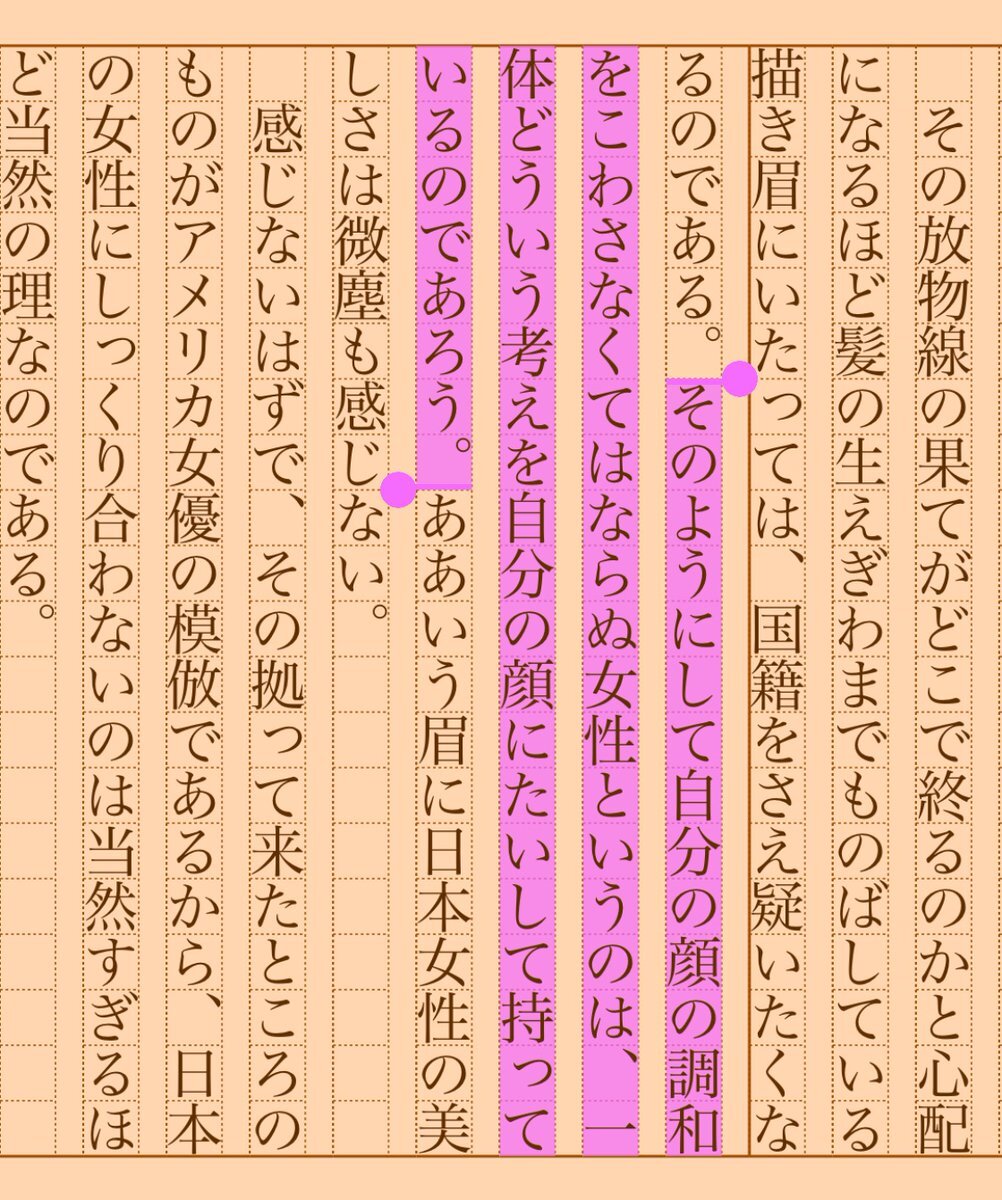 その放物線の果てがどこで終るのかと心配
になるほど髪の生えぎわまでものばしている
描き眉にいたっては、国籍をさえ疑いたくな
るのである。そのようにして自分の顔の調和
をこわさなくてはならぬ女性というのは、一
体どういう考えを自分の顔にたいして持って
いるのであろう。ああいう眉に日本女性の美
しさは微塵も感じない。
　感じないはずで、その拠って来たところの
ものがアメリカ女優の模倣であるから、日本
の女性にしっくり合わないのは当然すぎるほ
ど当然の理なのである。